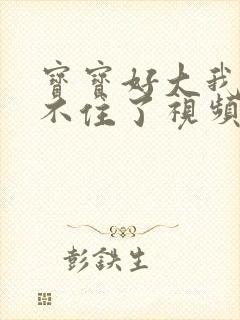 寶寶好大我
不住了視頻
彭鉄生